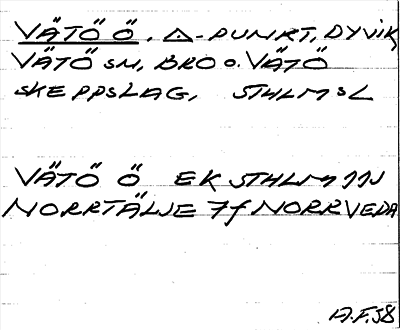 VÄTÖ Ö, △-PUNKT, DYVIK,
VÄTÖ SN, BRO O. VÄTÖ
SKEPPSLAG, STHLMS L
VÄTÖ Ö EK STHLM 11J
NORRTÄLJE 7f NORRVEDA
A.F. 58